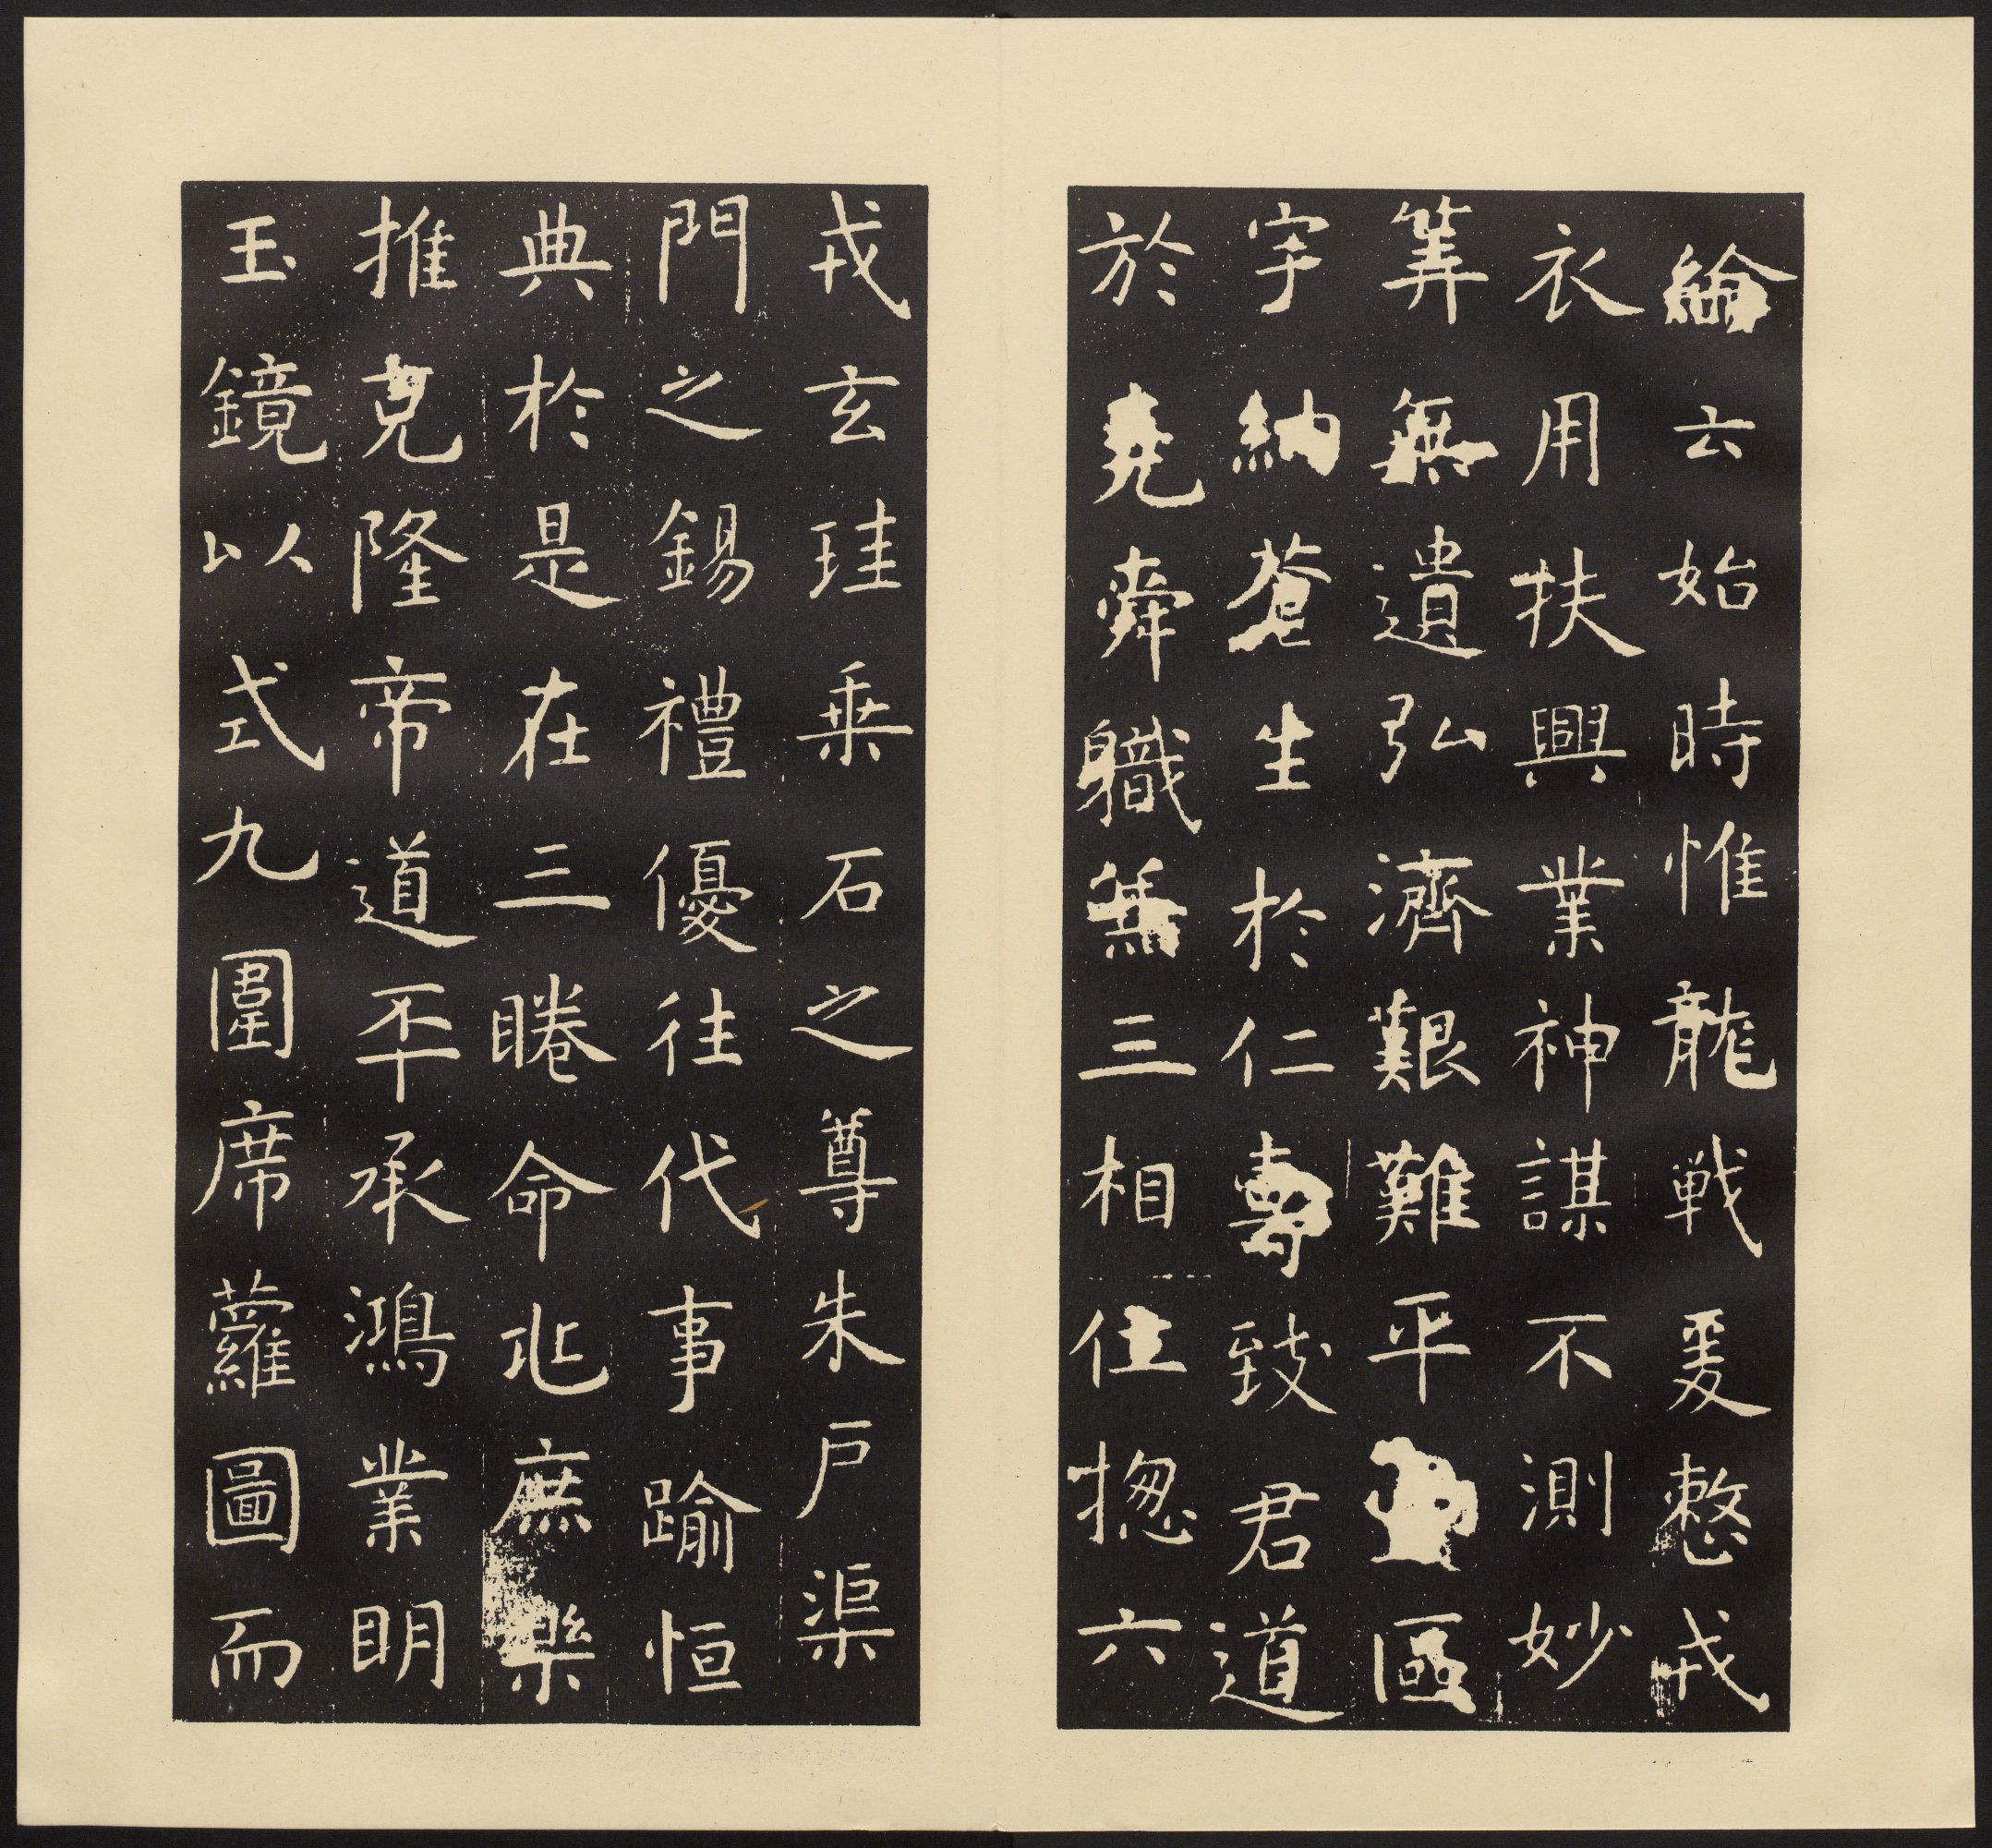 綸云始時惟龍戰爰整戎
衣用扶興業神謀不測妙
筭無遺弘濟艱難平區
宇納蒼生於仁壽致君道
於堯舜職兼三相位揔六
戎玄珪乘石之尊朱戶渠
門之錫禮優往代事踰恒
典於是在三睠命兆庶樂
推克隆帝道丕承鴻業明
玉鏡以式九圍席蘿圖而